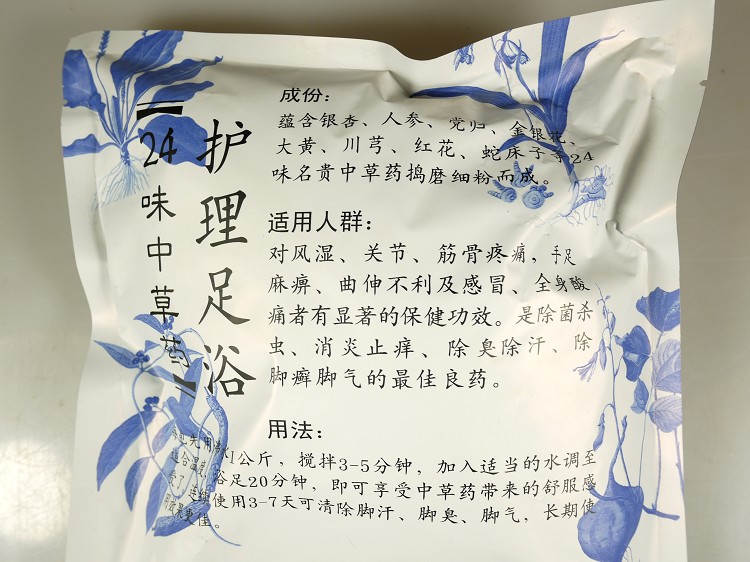 【24味中草药】
护理足浴
成份：
蕴含银杏、人参、党归、金银花、
大黄、川芎、红花、蛇床子等24
味名贵中草药捣磨细粉而成。
适用人群：
对风湿、关节、筋骨疼痛，手足
麻痹、曲伸不利及感冒、全身酸
痛者有显著的保健功效。是除菌杀
虫、消炎止痒、除臭除汗、除
脚癣脚气的最佳良药。
用法：
先用 1公斤，搅拌3-5分钟，加入适当的水调至
适合温度，浴足20分钟，即可享受中草药带来的舒服感
连续使用3-7天可清除脚汗、脚臭、脚气，长期使
用效果更佳。